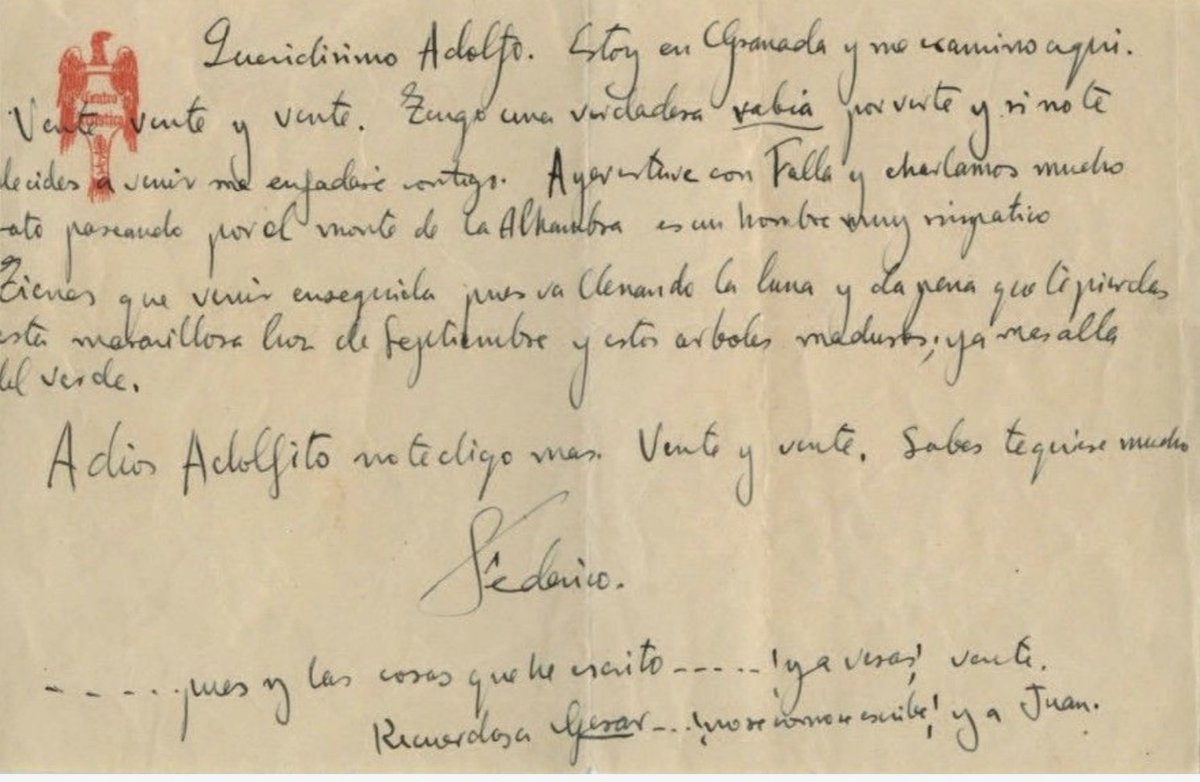 Queridisimo Adolfo. Estoy en Granada y me examino aqui.
Centro
Artistico
Vente vente y vente. Tengo una verdadera rabia por verte y si no te
decides a venir me enfadaré contigo. Ayer estuve con Falla y charlamos mucho
rato paseando por el monte de la Alhambra es un hombre muy simpatico
Tienes que venir enseguida pues va llenando la luna y da pena que te pierdas
esta maravillosa luz de Septiembre y estos arboles maduros; ya mas alla
del verde.
Adios Adolfito no te digo mas. Vente y vente. Sabes te quiere mucho
Federico.
- - - - . . pues y las cosas que he escrito - - - - - ¡ya veras! vente.
Recuerdos a Gerar - - - ¡no se como se escribe! y a Juan.